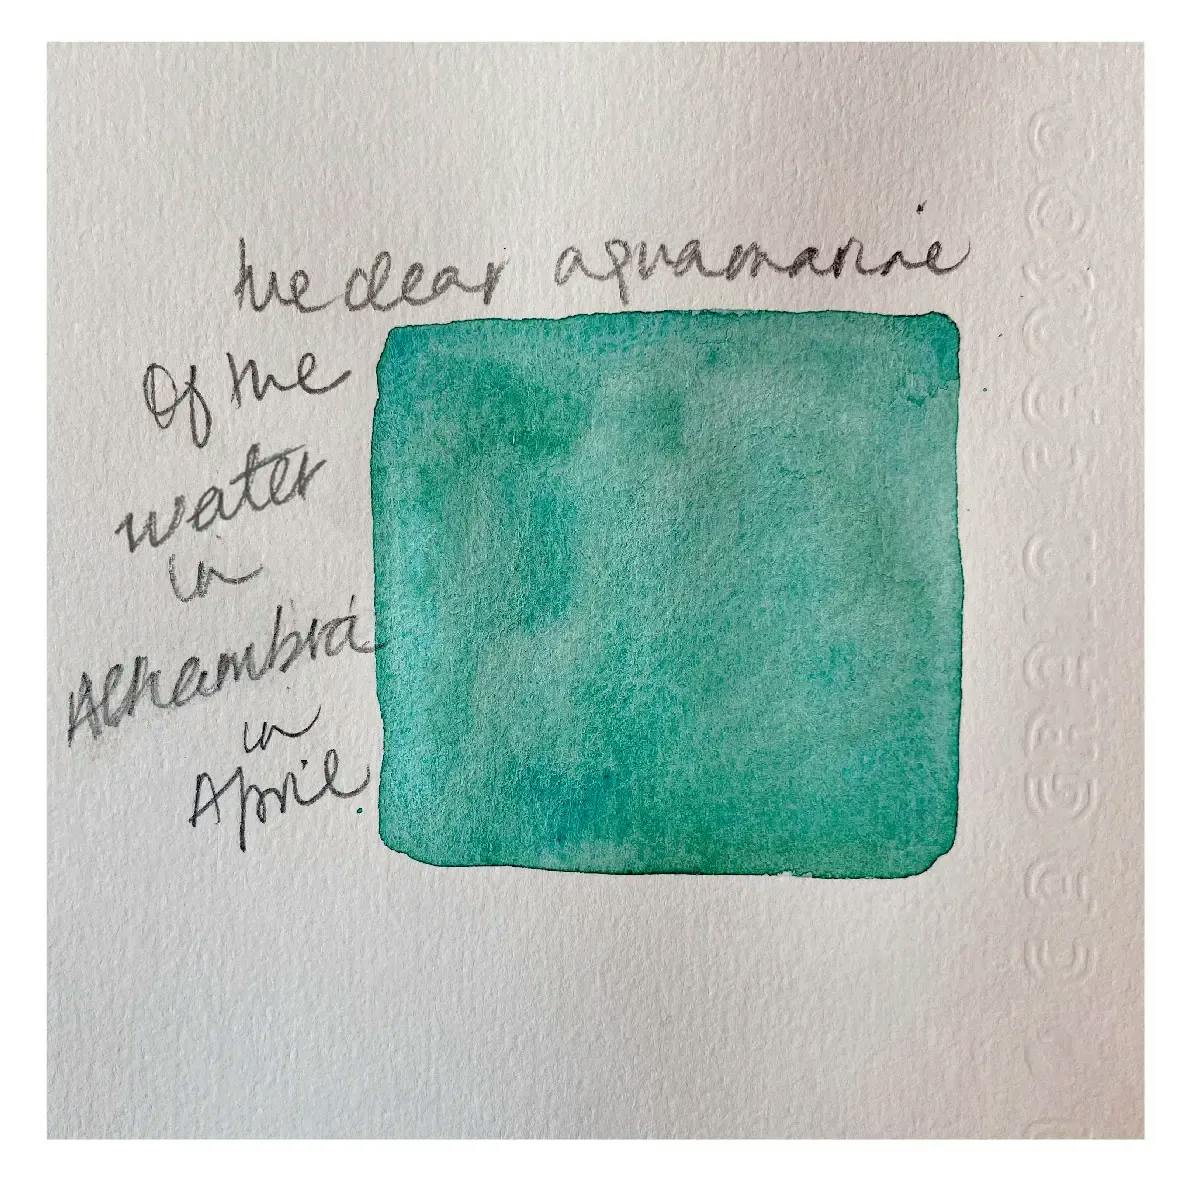 the clear aquamarine
Of the
water
in
Alhambra
in
April